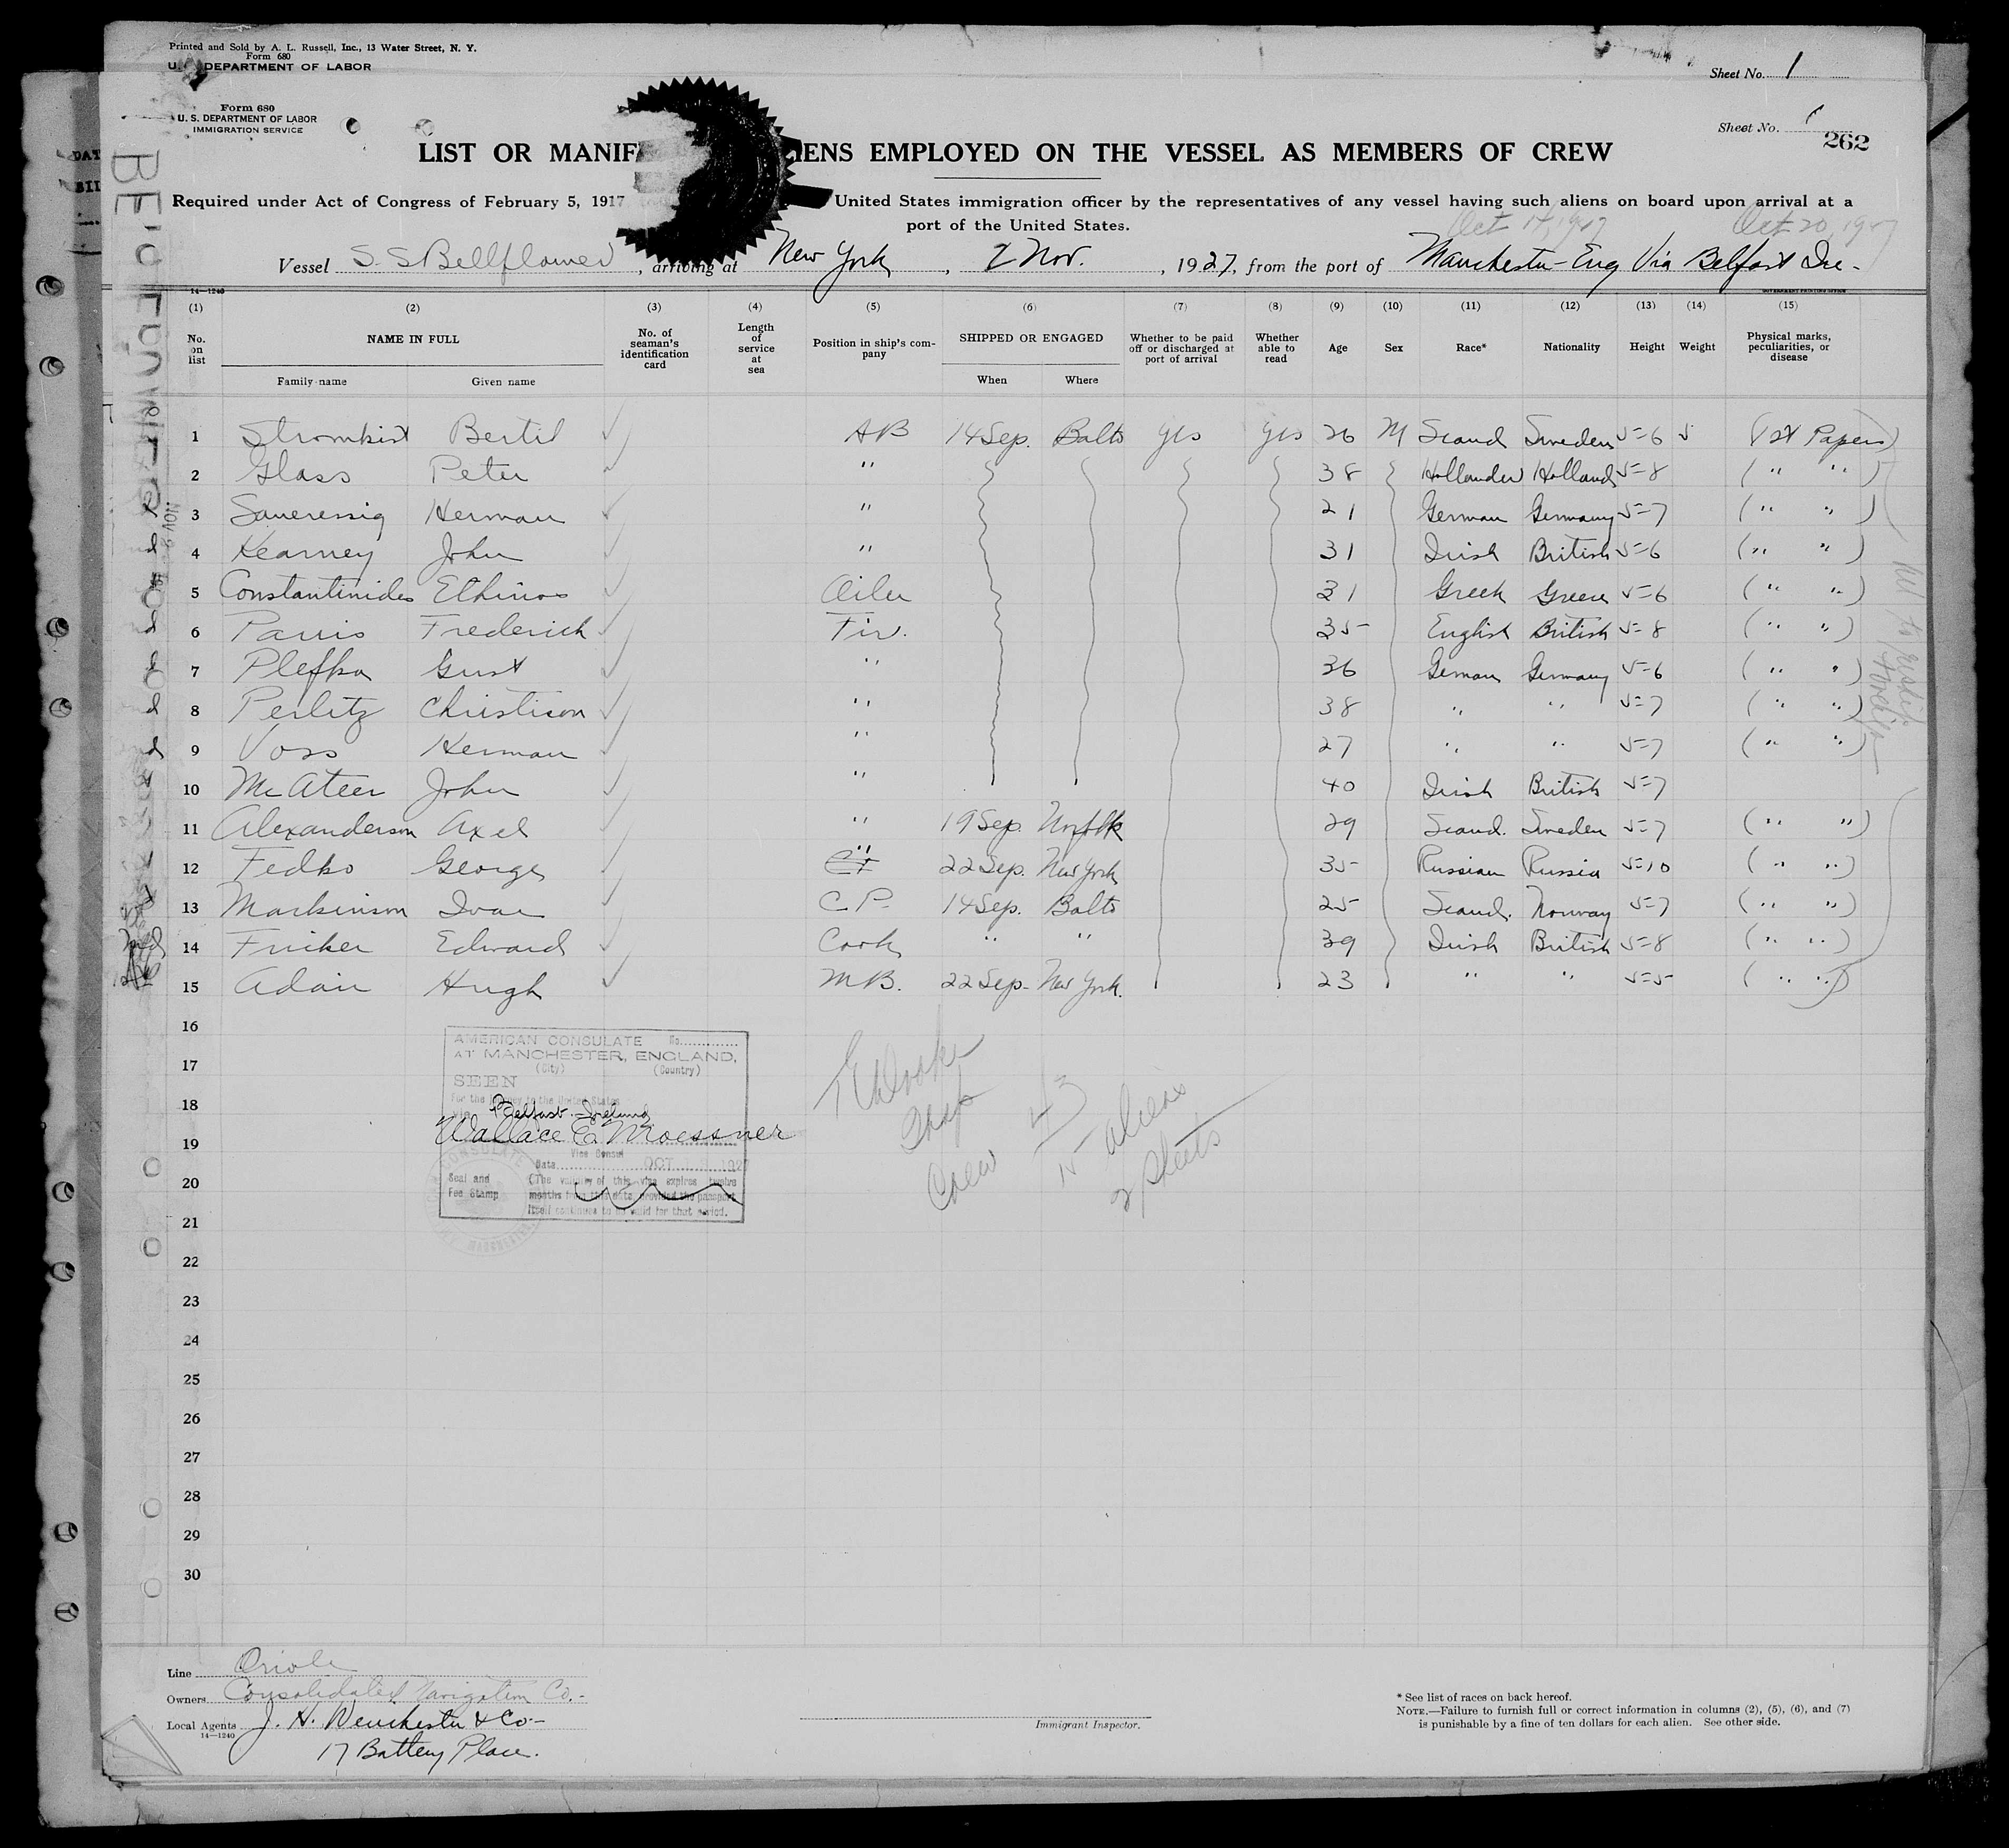 Printed and Sold by A. L. Russell, Inc., 13 Water Street, N. Y.
Form 680
U. DEPARTMENT OF LABOR
Sheet No. 1
Form 680
U. S. DEPARTMENT OF LABOR
IMMIGRATION SERVICE
Sheet No. 1
262
LIST OR MANIF IENS EMPLOYED ON THE VESSEL AS MEMBERS OF CREW
Required under Act of Congress of February 5, 1917 United States immigration officer by the representatives of any vessel having such aliens on board upon arrival at a
port of the United States.
Oct 20, 1927
Vessel S.S Bellflower, arriving at New York, 2 Nov., 1927, from the port of Manchester-Eng Via Belfast Ire-
14-1240 GOVERNMENT PRINTING OFFICE
(1) (2) (3) (4) (5) (6) (7) (8) (9) (10) (11) (12) (13) (14) (15)
No. on list NAME IN FULL No. of seaman's identification card Length of service at sea Position in ship's company SHIPPED OR ENGAGED Whether to be paid off or discharged at port of arrival Whether able to read Age Sex Race* Nationality Height Weight Physical marks, peculiarities, or disease
Family name Given name When Where
1 Stromkist Bertil AB 14 Sep. Balto yes yes 26 M Scand Sweden 5=6 5 (1st Papers)
2 Glass Peter " 38 Hollander Holland 5=8 (" ")
3 Saueressig Herman " 21 German Germany 5=7 (" ")
4 Kearney John " 31 Irish British 5=6 (" ")
5 Constantinides Elhinos Oiler 31 Greek Greece 5=6 (" ")
6 Parris Frederick Fir. 35 English British 5=8 (" ")
7 Plefka Gust " 36 German Germany 5=6 (" ")
8 Perlitz Christison " 38 " " 5=7 (" ")
9 Voss Herman " 27 " " 5=7 (" ")
10 McAteer John " 40 Irish British 5=7
11 Alexanderson Axel " 19 Sep. Norfolk 29 Scand. Sweden 5=7 (" ")
12 Fedko George " 22 Sep. New York 35 Russian Russia 5=10 (" ")
13 Markinson Ivar C.P. 14 Sep. Balto 25 Scand. Norway 5=7 (" ")
14 Fricker Edward Cook " " 39 Irish British 5=8 (" ")
15 Adair Hugh M.B. 22 Sep. New York. 23 " " 5=5 (" ")
16
17
18
19
20
21
22
23
24
25
26
27
28
29
30
AMERICAN CONSULATE No.
AT MANCHESTER, ENGLAND,
(City) (Country)
SEEN
For the journey to the United States
via Belfast. Ireland
Wallace E. Moessner
Vice Consul
Date OCT 1927
Seal and
Fee Stamp
(The validity of this visa expires twelve
months from this date provided the passport
itself continues to be valid for that period.
Insp
Crew 43
15 aliens
2 sheets
Line Oriole
Owners Consolidated Navigation Co.-
Local Agents J. H. Winchester & Co-
14-1240
17 Battery Place.
Immigrant Inspector.
* See list of races on back hereof.
NOTE.—Failure to furnish full or correct information in columns (2), (5), (6), and (7)
is punishable by a fine of ten dollars for each alien. See other side.